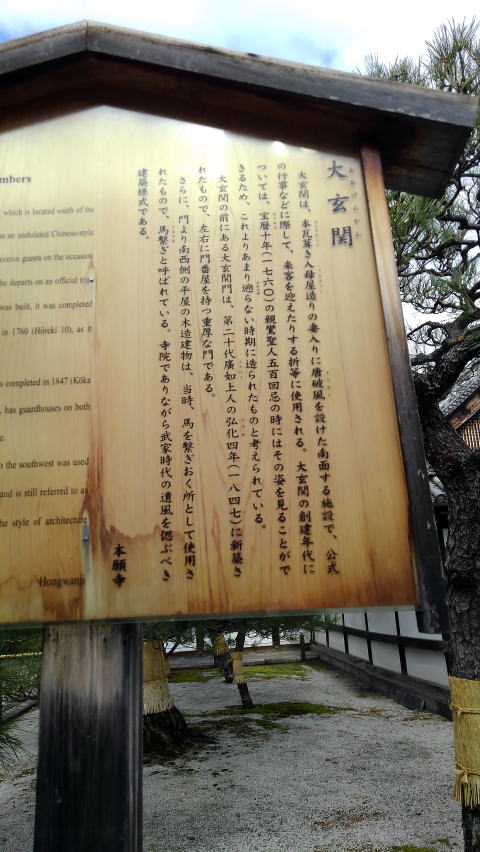 大玄関
おおげんかん
大玄関は、本瓦葺き入母屋造りの妻入りに唐破風を設けた南面する施設で、公式
の行事などに際して、来客を迎えたりする折等に使用される。大玄関の創建年代に
ついては、宝暦十年（一七六〇）の親鸞聖人五百回忌の時にはその姿を見ることがで
きるため、これよりあまり遡らない時期に造られたものと考えられている。
大玄関の前にある大玄関門は、第二十代廣如上人の弘化四年（一八四七）に新築さ
れたもので、左右に門番屋を持つ重厚な門である。
さらに、門より南西側の平屋の木造建物は、当時、馬を繋ぎおく所として使用さ
れたもので、馬繋ぎと呼ばれている。寺院でありながら武家時代の遺風を偲ぶべき
建築様式である。
本願寺
mbers
, which is located south of the
as an undulated Chinese-style
receive guests on the occasion
he departs on an official trip
was built, it was completed
in 1760 (Hōreki 10), as it
as completed in 1847 (Kōka
, has guardhouses on both
e.
o the southwest was used
and is still referred to as
the style of architecture
Hongwanji